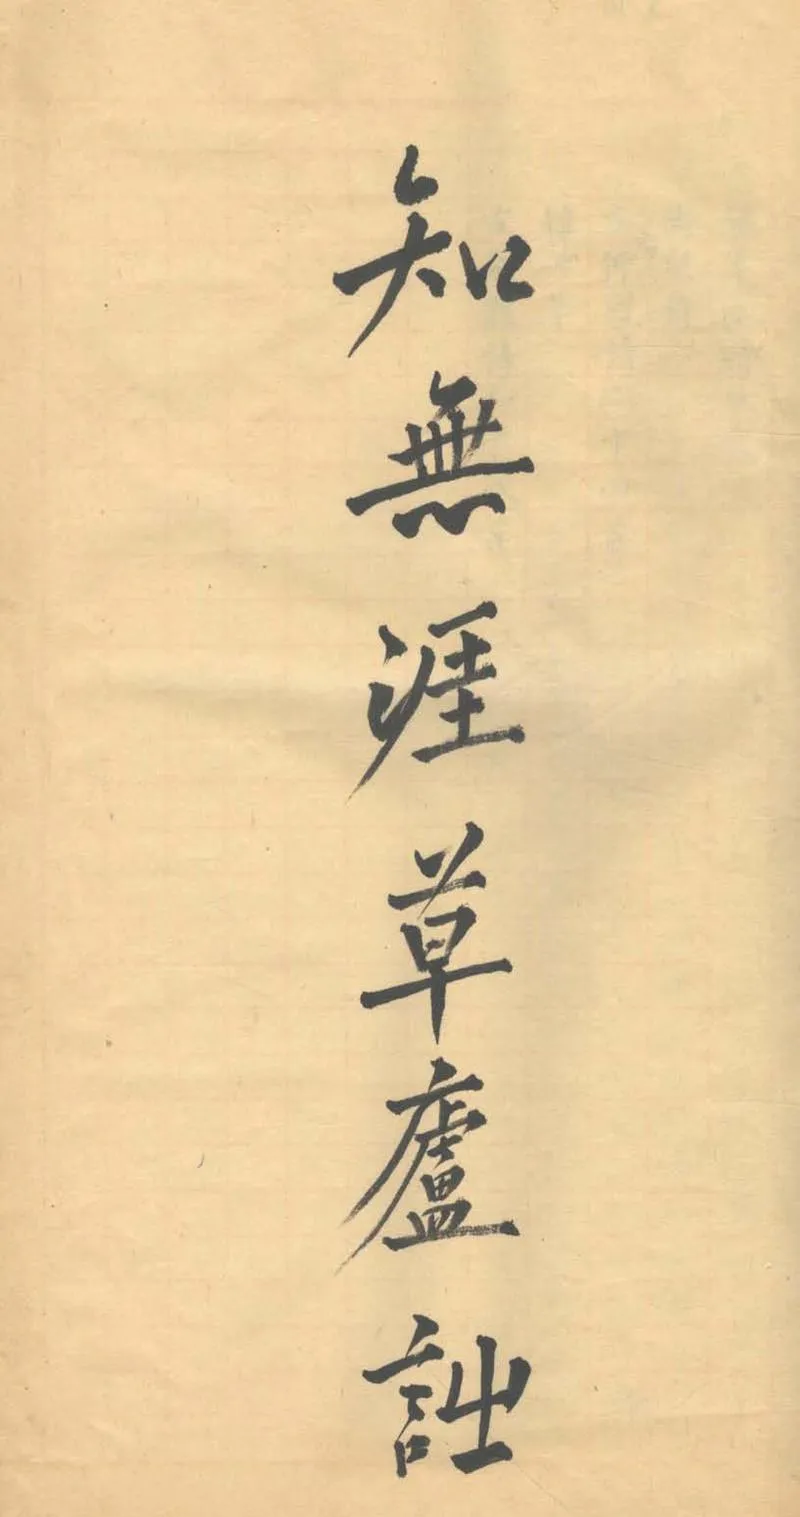 知無涯草廬𧥳